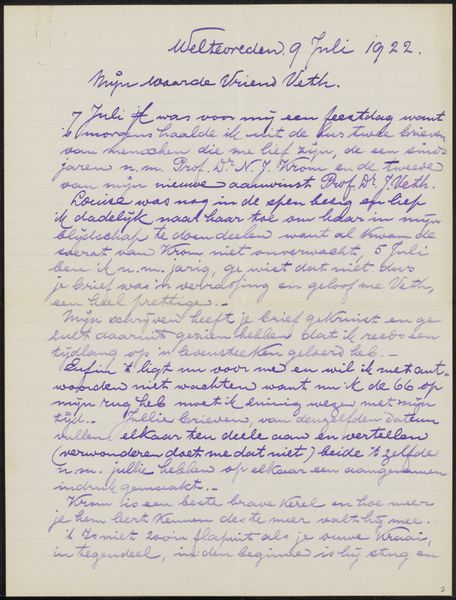 Weltevreden 9 Juli 1922.
Mijn waarde Vriend Veth.
7 Juli was voor mij een feestdag want
's morgens haalde ik uit de bus twee brieven
van menschen die me lief zijn, de een sinds
jaren n.m. Prof. Dr. N. J. Krom en de tweede
van mijn nieuwe aanwinst Prof. Dr. J. Veth.
Louise was nog in de spen bezig en liep
ik dadelijk naar haar toe om haar in mijn
blijdschap te doen deelen want al kwam de
van Krom niet onverwacht, 5 Juli
ben ik n.m. jarig, ge wist dat niet dus
je brief was 'n verrassing en geloof me Veth,
een heel prettige.-
Mijn schrijven heeft je brief gekruist en ge
zult daaruit gezien hebben dat ik reeds een
tijdlang op 'n levensteeken geloerd heb.-
Enfin 't ligt nu voor me en wil ik met ant-
woorden niet wachten want nu ik de 66 op
mijn rug heb moet ik zuinig wezen met mijn
tijd.. Jullie brieven, van denzelfden datum
vullen elkaar ten deele aan en vertellen
(verwonderen doet me dat niet) beide 't zelfde
n.m. jullie hebben op elkaar een aangenamen
indruk gemaakt.-
Krom is een beste brave kerel en hoe meer
je hem leert kennen des te meer valt hij mee.
't Is niet zoo'n flapuit als je ouwe Kraai,
in tegendeel, in den beginne is hij stug en